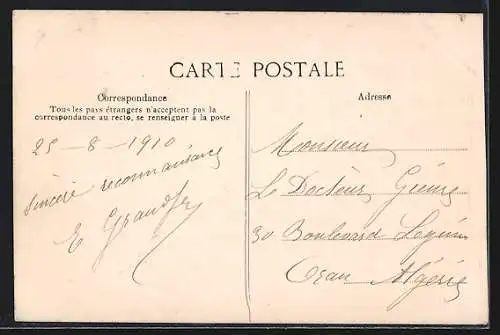 CARTE POSTALE
Correspondance
Tous les pays étrangers n'acceptent pas la
correspondance au recto, se renseigner à la poste
Adresse
25 - 8 - 1910
Sincère reconnaissance
E
Monsieur
Le Docteur
30 Boulevard
Oran Algérie